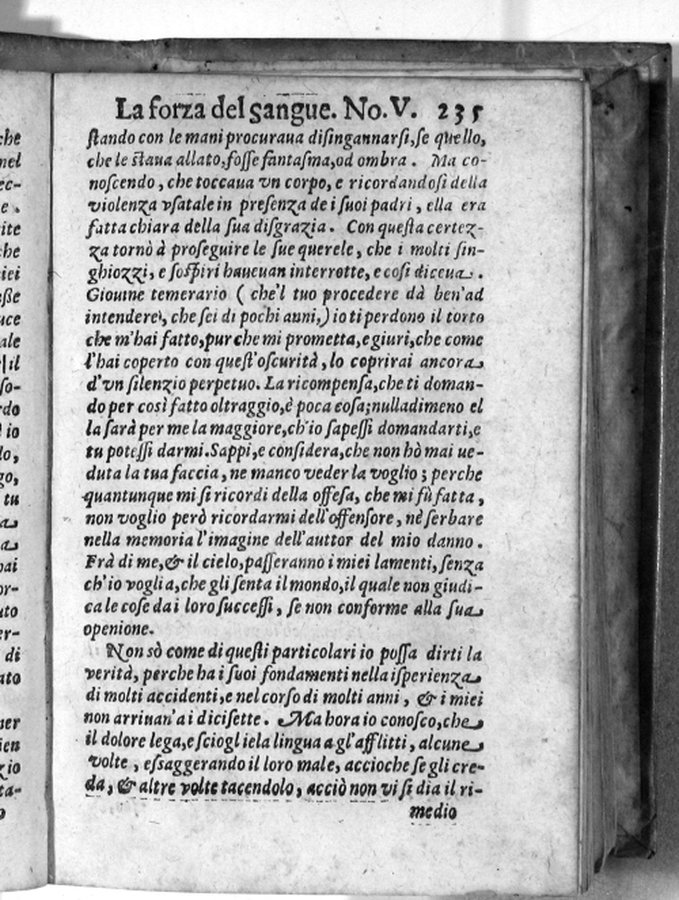 La forza del sangue. No. V. 235
ſtando con le mani procuraua diſingannarſi, ſe quello,
che le ſtaua allato, foſſe fantaſma, od ombra. Ma co-
noſcendo, che toccaua vn corpo, e ricordandoſi della
violenza vſatale in preſenza de i ſuoi padri, ella era
fatta chiara della ſua diſgrazia. Con queſta certez-
za tornò à proſeguire le ſue querele, che i molti ſin-
ghiozzi, e ſoſpiri haueuan interrotte, e coſi diceua.
Giouine temerario ( che'l tuo procedere dà ben'ad
intendere, che ſei di pochi anni,) io ti perdono il torto
che m'hai fatto, pur che mi prometta, e giuri, che come
l'hai coperto con queſt'oſcurità, lo coprirai ancora
d'vn ſilenzio perpetuo. La ricompenſa, che ti doman-
do per così fatto oltraggio, è poca coſa; nulladimeno el
la ſarà per me la maggiore, ch'io ſapeſſi domandarti, e
tu poteſſi darmi. Sappi, e conſidera, che non hò mai ue-
duta la tua faccia, ne manco veder la voglio; perche
quantunque mi ſi ricordi della offeſa, che mi fù fatta,
non voglio però ricordarmi dell'offenſore, nè ſerbare
nella memoria l'imagine dell'auttor del mio danno.
Frà di me, & il cielo, paſſeranno i miei lamenti, ſenza
ch'io voglia, che gli ſenta il mondo, il quale non giudi-
ca le coſe da i loro ſucceſſi, ſe non conforme alla ſua
openione.
Non sò come di queſti particolari io poſſa dirti la
verità, perche ha i ſuoi fondamenti nella iſperienza
di molti accidenti, e nel corſo di molti anni, & i miei
non arriuan'a i diciſette. Ma hora io conoſco, che
il dolore lega, e ſcioglie la lingua a gl'afflitti, alcune
volte, eſſaggerando il loro male, accioche ſe gli cre-
da, & altre volte tacendolo, acciò non vi ſi dia il ri-
medio